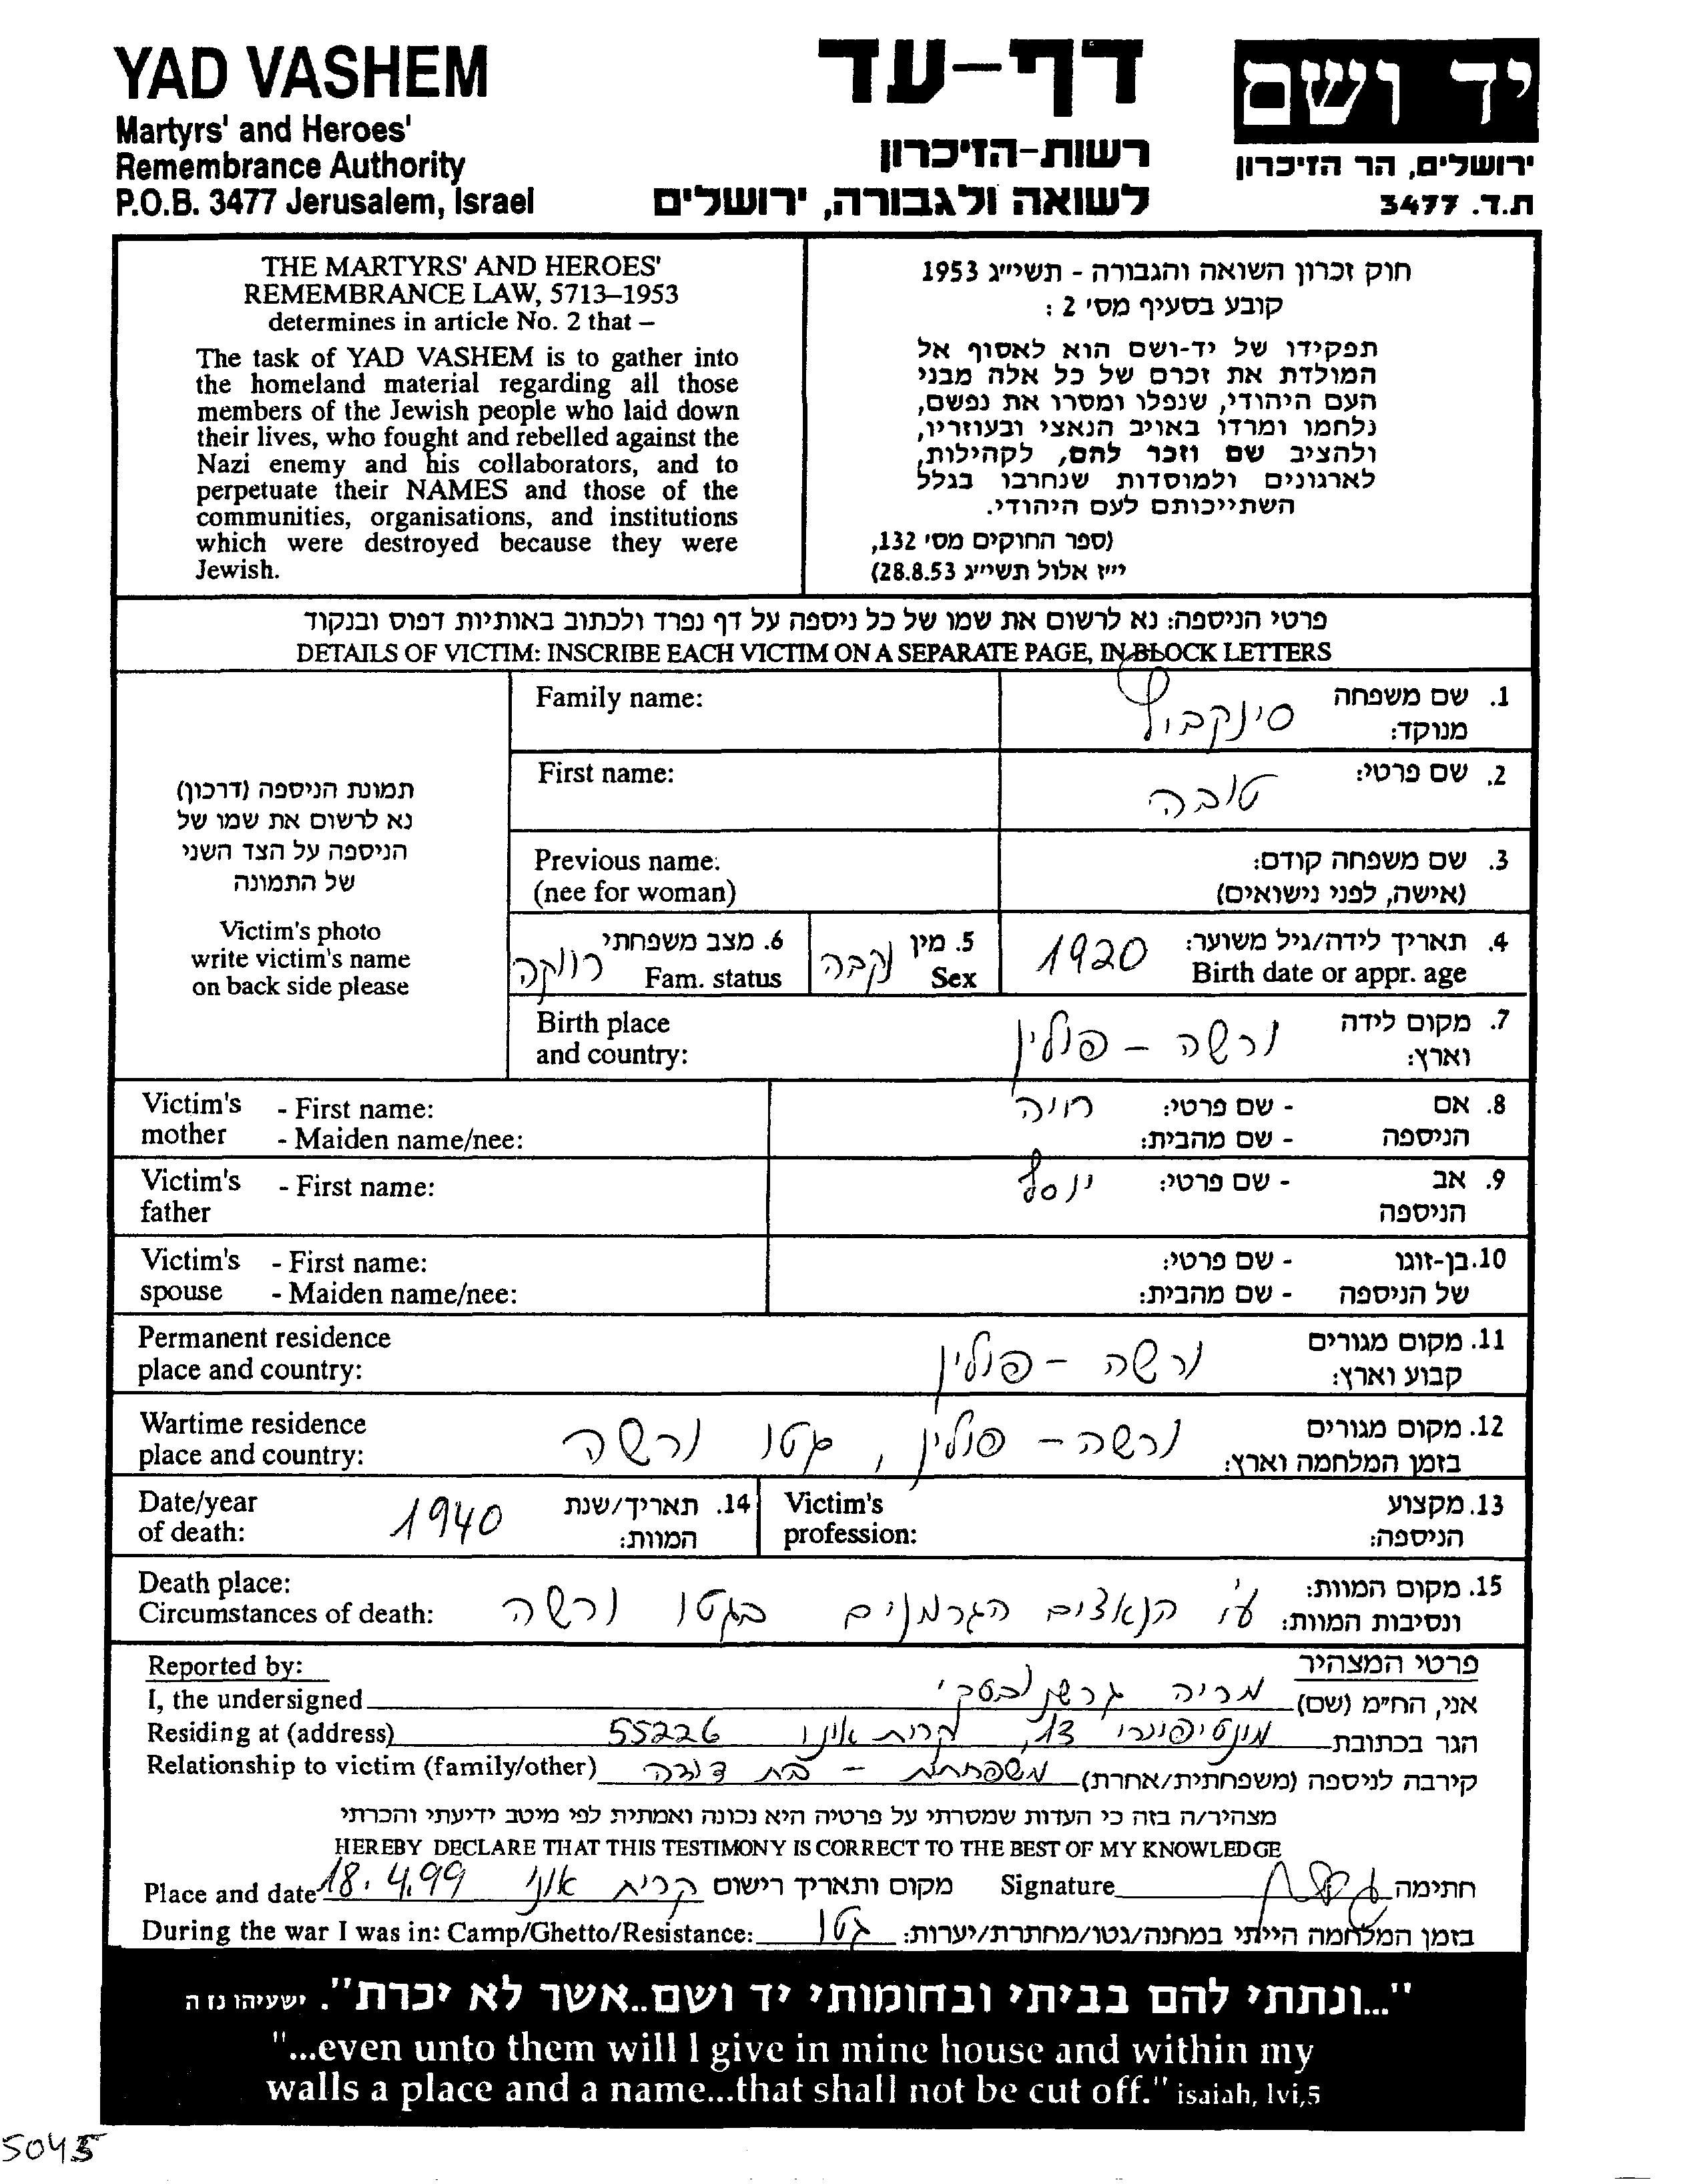 YAD VASHEM
Martyrs' and Heroes'
Remembrance Authority
P.O.B. 3477 Jerusalem, Israel
דף-עד
רשות-הזיכרון
לשואה ולגבורה, ירושלים
יד ושם
ירושלים, הר הזיכרון
ת.ד. 3477
THE MARTYRS' AND HEROES'
REMEMBRANCE LAW, 5713–1953
determines in article No. 2 that –
The task of YAD VASHEM is to gather into
the homeland material regarding all those
members of the Jewish people who laid down
their lives, who fought and rebelled against the
Nazi enemy and his collaborators, and to
perpetuate their NAMES and those of the
communities, organisations, and institutions
which were destroyed because they were
Jewish.
חוק זכרון השואה והגבורה - תשי״ג 1953
קובע בסעיף מס׳ 2 :
תפקידו של יד-ושם הוא לאסוף אל
המולדת את זכרם של כל אלה מבני
העם היהודי, שנפלו ומסרו את נפשם,
נלחמו ומרדו באויב הנאצי ובעוזריו,
ולהציב שם וזכר להם, לקהילות,
לארגונים ולמוסדות שנחרבו בגלל
השתייכותם לעם היהודי.
(ספר החוקים מס׳ 132,
י״ז אלול תשי״ג 28.8.53)
פרטי הניספה: נא לרשום את שמו של כל ניספה על דף נפרד ולכתוב באותיות דפוס ובנקוד
DETAILS OF VICTIM: INSCRIBE EACH VICTIM ON A SEPARATE PAGE, IN BLOCK LETTERS
תמונת הניספה (דרכון)
נא לרשום את שמו של
הניספה על הצד השני
של התמונה
Victim's photo
write victim's name
on back side please
Family name: סינקבול 1. שם משפחה
מנוקד:
First name: טובה 2. שם פרטי:
Previous name: 3. שם משפחה קודם:
(nee for woman) (אישה, לפני נישואים)
רווקה 6. מצב משפחתי נקבה 5. מין 1920 4. תאריך לידה/גיל משוער:
Fam. status Sex Birth date or appr. age
Birth place ורשה - פולין 7. מקום לידה
and country: וארץ:
Victim's - First name: חיה - שם פרטי: 8. אם
mother - Maiden name/nee: - שם מהבית: הניספה
Victim's - First name: יוסף - שם פרטי: 9. אב
father הניספה
Victim's - First name: - שם פרטי: 10. בן-זוגו
spouse - Maiden name/nee: - שם מהבית: של הניספה
Permanent residence ורשה - פולין 11. מקום מגורים
place and country: קבוע וארץ:
Wartime residence ורשה - פולין, גטו ורשה 12. מקום מגורים
place and country: בזמן המלחמה וארץ:
Date/year 1940 14. תאריך/שנת Victim's 13. מקצוע
of death: המוות: profession: הניספה:
Death place: 15. מקום המוות:
Circumstances of death: ע״י הנאצים הגרמנים בגטו ורשה ונסיבות המוות:
Reported by: פרטי המצהיר
I, the undersigned מריה גרשנובסקי אני, הח״מ (שם)
Residing at (address) מונטיפיורי 13, קרית אונו 55226 הגר בכתובת
Relationship to victim (family/other) משפחתית - בת דודה קירבה לניספה (משפחתית/אחרת)
מצהיר/ה בזה כי העדות שמסרתי על פרטיה היא נכונה ואמתית לפי מיטב ידיעתי והכרתי
HEREBY DECLARE THAT THIS TESTIMONY IS CORRECT TO THE BEST OF MY KNOWLEDGE
Place and date 18.4.99 קרית אונו מקום ותאריך רישום Signature חתימה
During the war I was in: Camp/Ghetto/Resistance: גטו בזמן המלחמה הייתי במחנה/גטו/מחתרת/יערות:
"...ונתתי להם בביתי ובחומותי יד ושם..אשר לא יכרת". ישעיהו נו ה
"...even unto them will I give in mine house and within my
walls a place and a name...that shall not be cut off." isaiah, lvi,5
5045